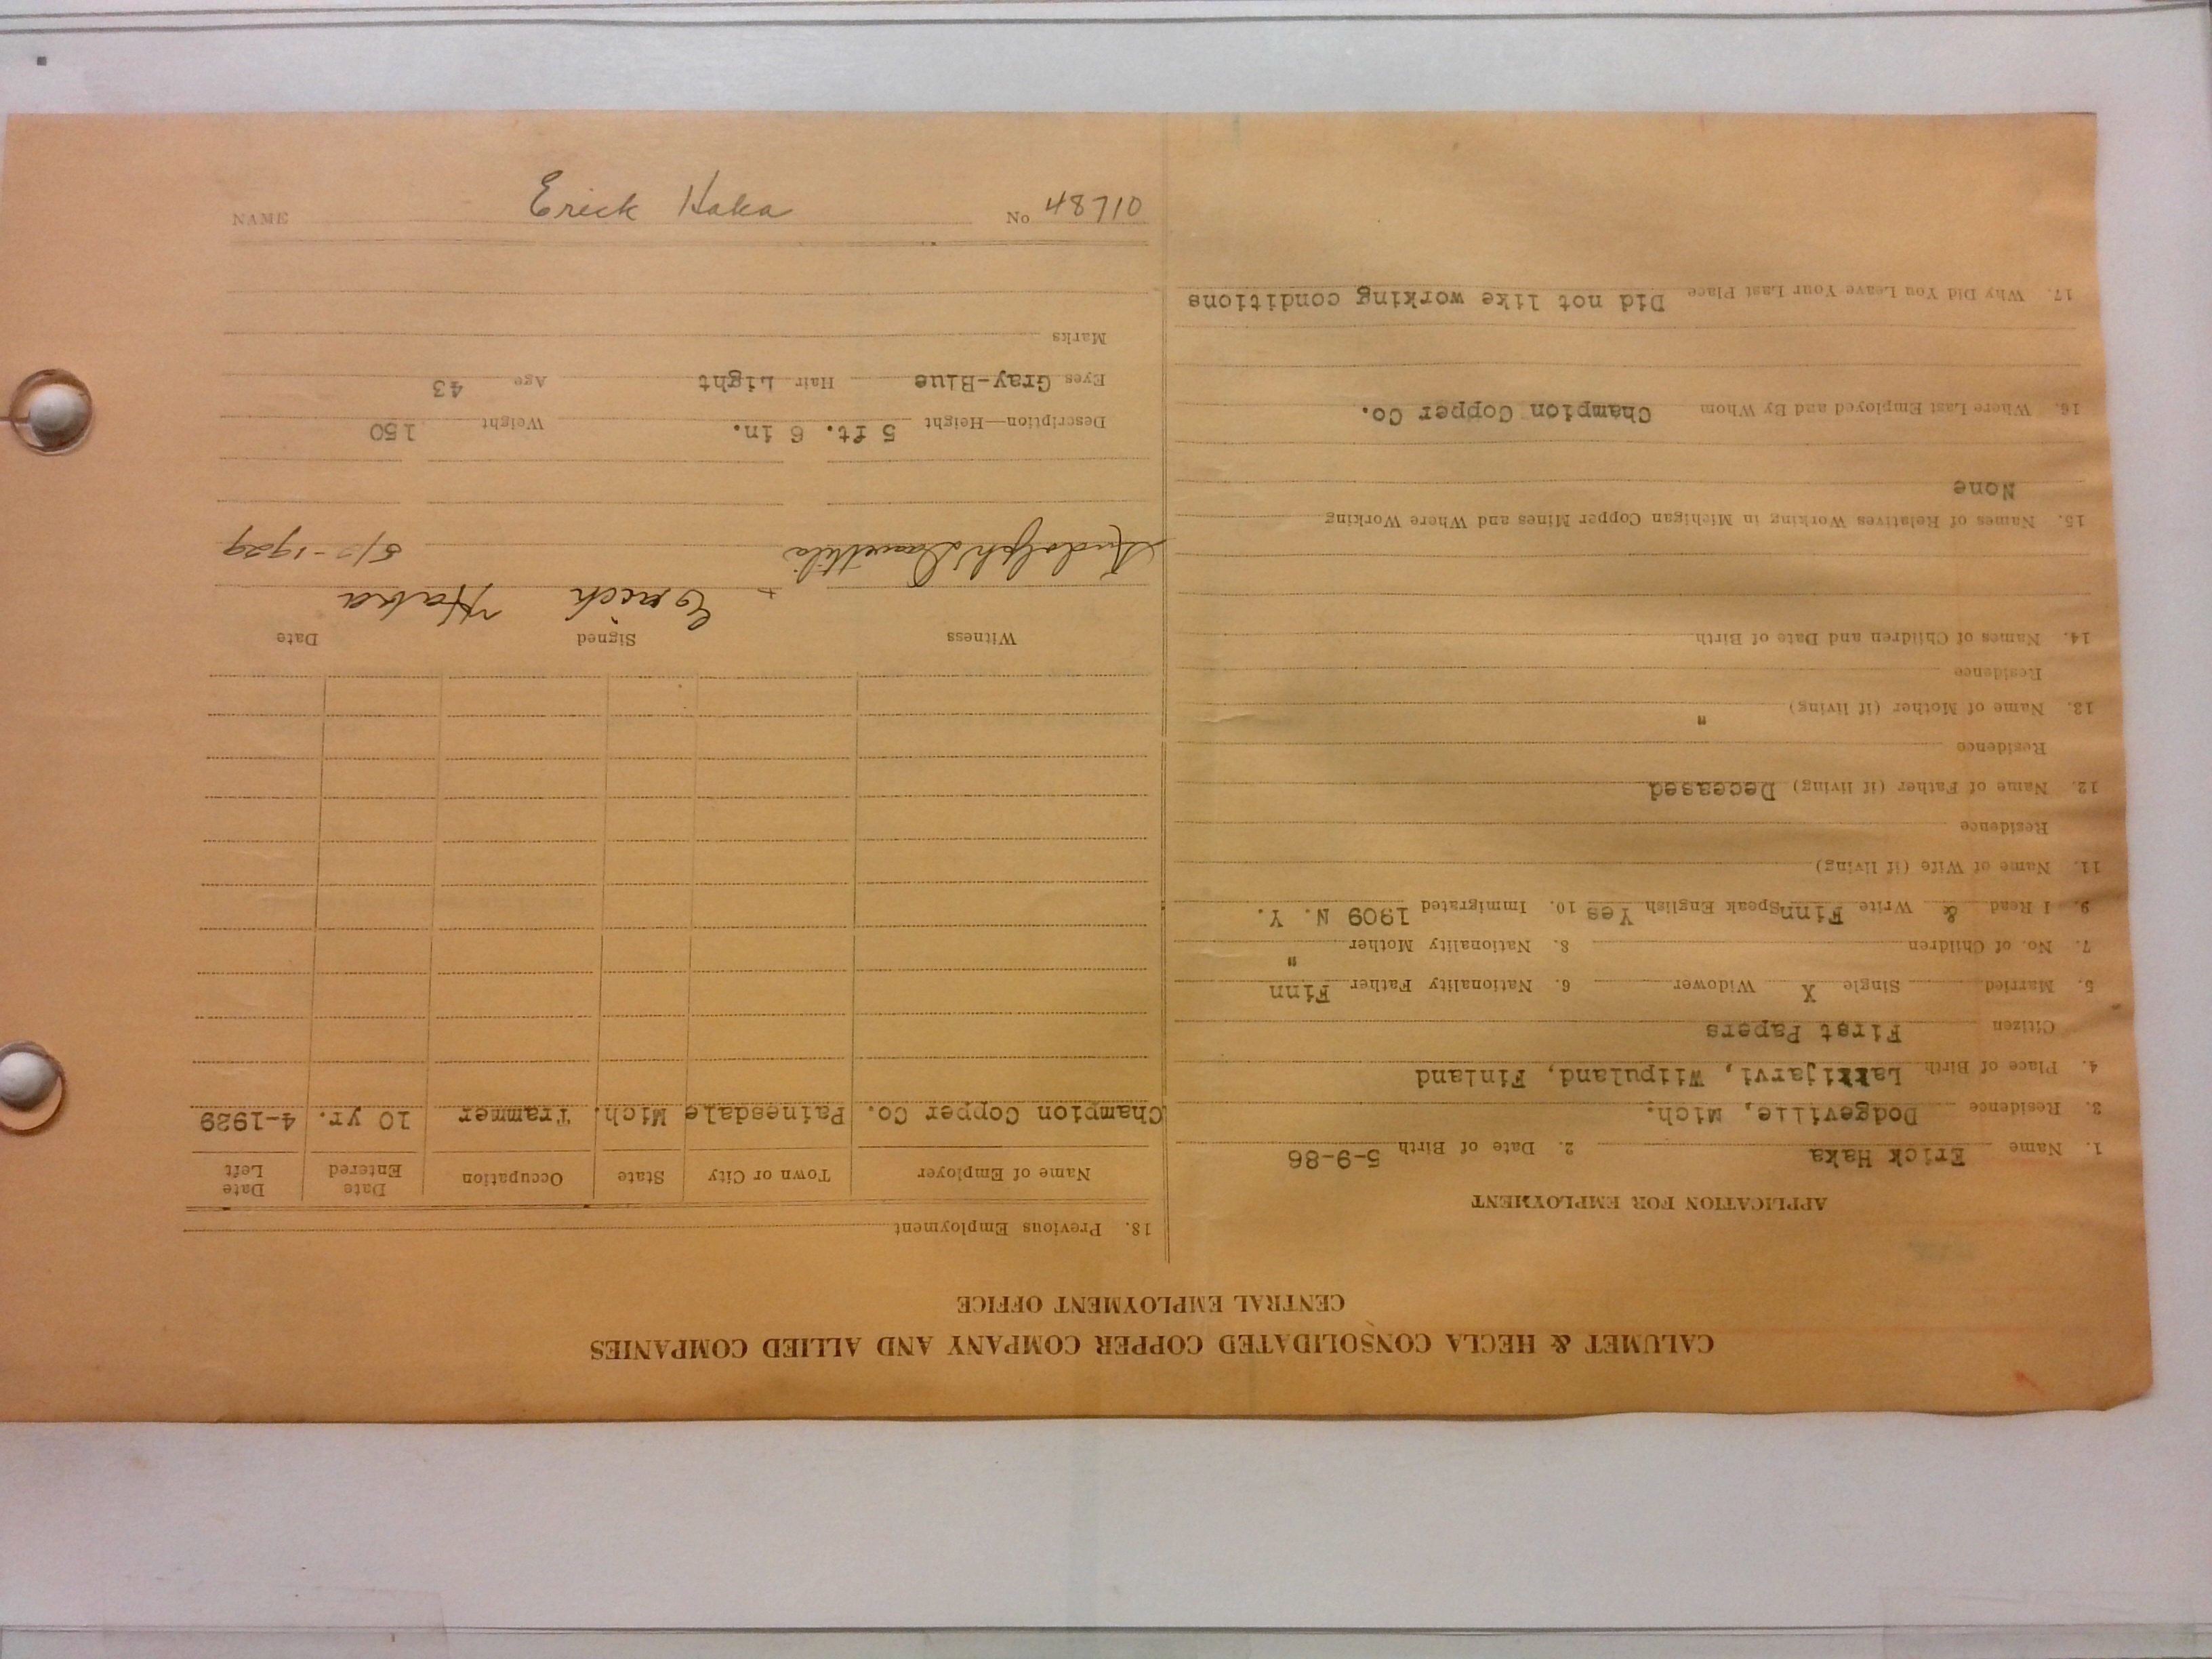 CALUMET & HECLA CONSOLIDATED COPPER COMPANY AND ALLIED COMPANIES
CENTRAL EMPLOYMENT OFFICE
APPLICATION FOR EMPLOYMENT
1. Name Erick Haka 2. Date of Birth 5-9-86
3. Residence Dodgeville, Mich.
4. Place of Birth Lakkijarvi, Wiipuland, Finland
Citizen First Papers
5. Married Single X Widower 6. Nationality Father Finn
7. No. of Children 8. Nationality Mother "
9. I Read & Write Finn Speak English Yes 10. Immigrated 1909 N. Y.
11. Name of Wife (if living)
Residence
12. Name of Father (if living) Deceased
Residence
13. Name of Mother (if living) "
Residence
14. Names of Children and Date of Birth
15. Names of Relatives Working in Michigan Copper Mines and Where Working
None
16. Where Last Employed and By Whom Champion Copper Co.
17. Why Did You Leave Your Last Place Did not like working conditions
18. Previous Employment
Name of Employer Town or City State Occupation Date Entered Date Left
Champion Copper Co. Painesdale Mich. Trammer 10 yr. 4-1929
Witness Signed Date
Erick Haka
Rudolph 1929
Description—Height 5 ft. 6 in. Weight 150
Eyes Gray-Blue Hair Light Age 43
Marks
NAME Erick Haka No 48710